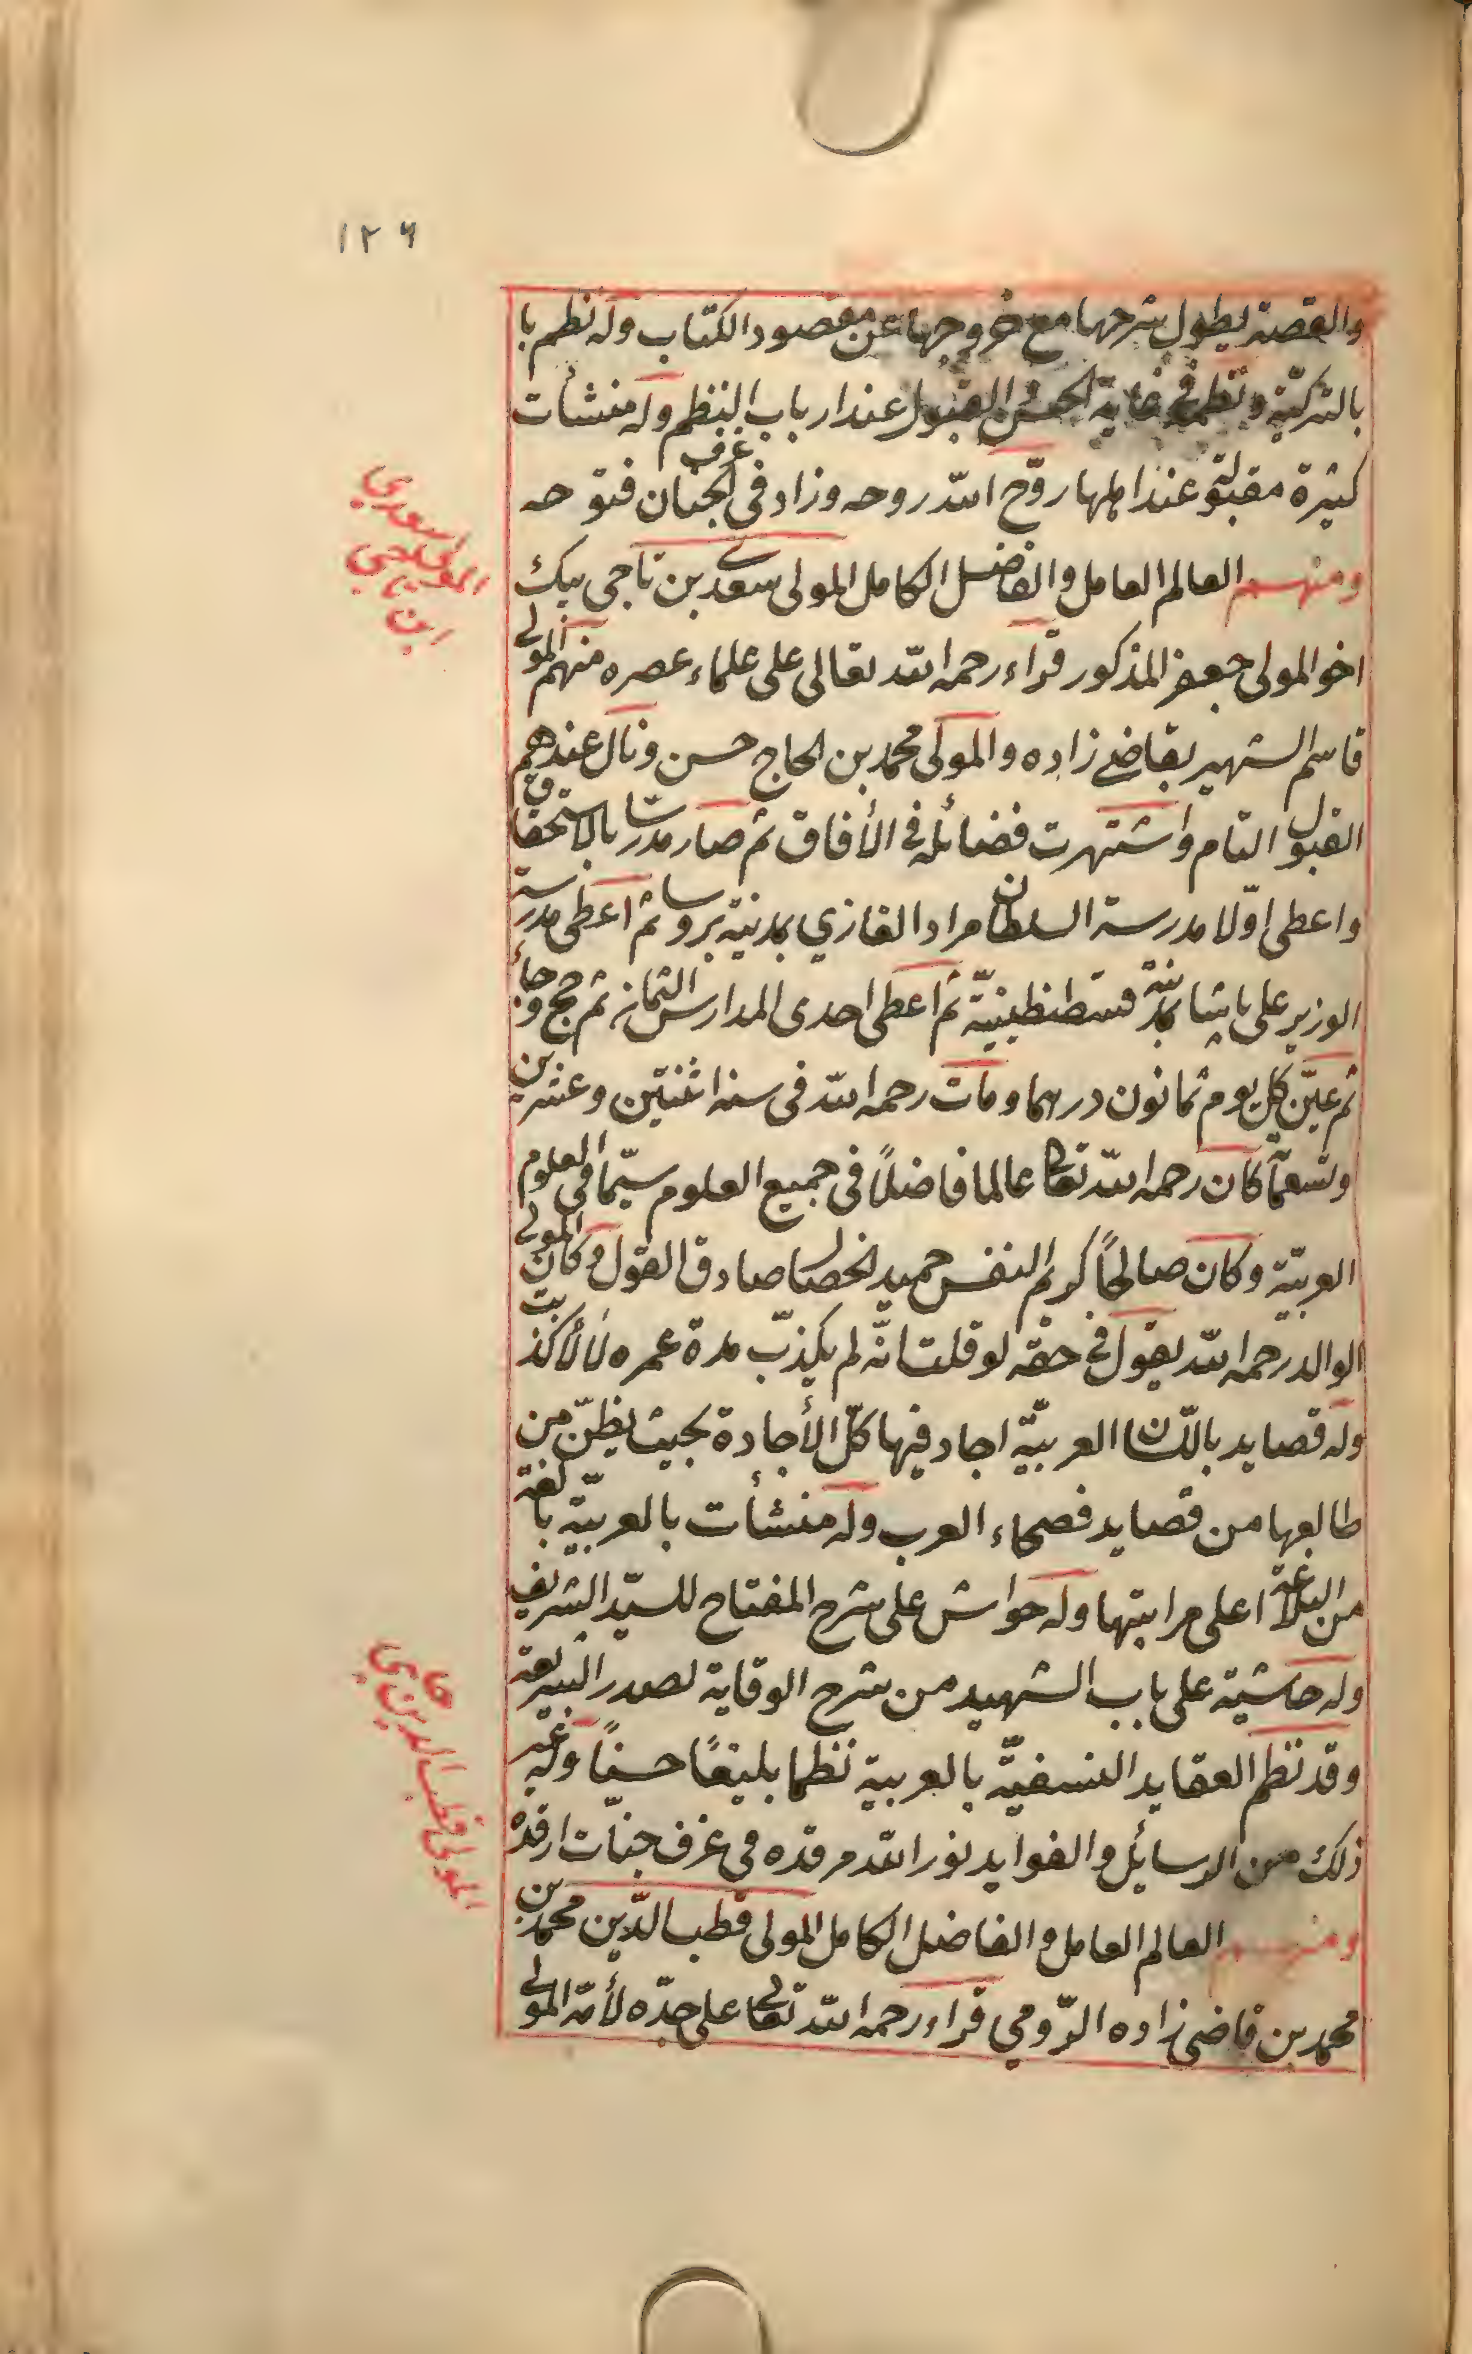 ١٢٦
والقصة يطول شرحها مع خروجها عن مقصود الكتاب وله نظم با
بالتركية ونظمه في غاية الحسن القبول عند ارباب النظم وله منشأت
كثيرة مقبولة عند اهلها روّح اللّه روحه وزاد في غرف الجنان فتوحه
ومنهم العالم العامل والفاضل الكامل المولى سعدي بن ناجى بيك
اخو المولى جعفر المذكور قراء رحمه اللّه تعالى على علماء عصره منهم المولى
قاسم الشهير بقاضى زاده والمولى محمد بن الحاج حسن ونال عندهم
القبول التام واشتهرت فضائله في الأفاق ثم صار مدرسا بالاستحقاق
واعطى اوّلا مدرسة السلطان مراد الغازي بمدينة بروسا ثم اعطى مدرسة
الوزير على پاشا بمدينة قسطنطينيّة ثم اعطى احدى المدارس الثمان ثم حج وجاء
ثم عيّن كل يوم ثمانون درهما ومات رحمه اللّه في سنة اثنتين وعشرين
وتسعمأ كان رحمه اللّه تعالى عالما فاضلًا في جميع العلوم سيّما في العلوم
العربيّة وكان صالحًا كريم النفس حميد الخصال صادق القول وكان المولى
الوالد رحمه اللّه يقول في حقه لو قلت انّه لم يكذب مدة عمره لما كذبت
وله قصايد باللسان العربيّة اجاد فيها كلّ الأجادة بحيث يظنّ من
طالعها من قصايد فصحاء العرب وله منشأت بالعربيّة بالغة
من البلاغة اعلى مراتبها وله حواش على شرح المفتاح للسيّد الشريف
وله حاشية على باب الشهيد من شرح الوقاية لصدر الشريعة
وقد نظم العقايد النسفيّة بالعربية نظما بليغًا حسنًا وله غير
ذلك من الرسائل والفوايد نور اللّه مرقده في غرف جنّات ارقده
ومنهم العالم العامل والفاضل الكامل المولى قطب الدّين محمد بن
محمد بن قاضى زاده الرّومي قراء رحمه اللّه تعالى على جدّه لأمّه المولى
المولى سعدي
ابن ناجى
المولى قطب الدين